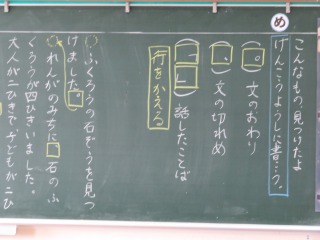 め
こんなもの、見つけたよ
げんこうようしに書こう。
。 文のおわり
、 文の切れめ
「 」 話したことば
行をかえる
ふくろうの石ぞうを見つ
けました。
れんがのみちに、石のふ
くろうが四ひきいました。
大人が二ひきで、子どもが二ひ